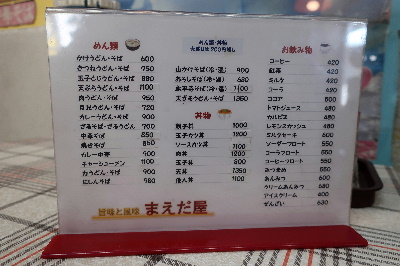 めん類
かけうどん・そば 600
きつねうどん・そば 750
玉子とじうどん・そば 880
天ぷらうどん・そば 1100
肉うどん・そば 950
月見うどん・そば 720
カレーうどん・そば 900
ざるそば・ざるうどん 700
中華そば 850
焼きそば 850
カレー中華 900
チャーシューメン 1100
わうどん・そば 900
にしんそば 980
めん類・丼物
大盛りは200円増し
山かけそば(冷・温) 900
おろしそば(冷・温) 630
天ざるうどん・そば 1350
丼物
親子丼 1000
カツ丼 1200
ソースカツ丼 1100
肉丼 1200
玉子丼 800
天丼 1350
他人丼 1100
お飲み物
コーヒー 420
紅茶 420
ミルク 420
コーラ 420
ココア 600
トマトジュース 480
カルピス 480
レモンスカッシュ 480
ミルクセーキ 600
ソーダーフロート 550
コーラフロート 550
コーヒーフロート 550
みつまめ 550
あんみつ 600
クリームあんみつ 680
アイスクリーム 400
ぜんざい 630
旨味と風味 まえだ屋